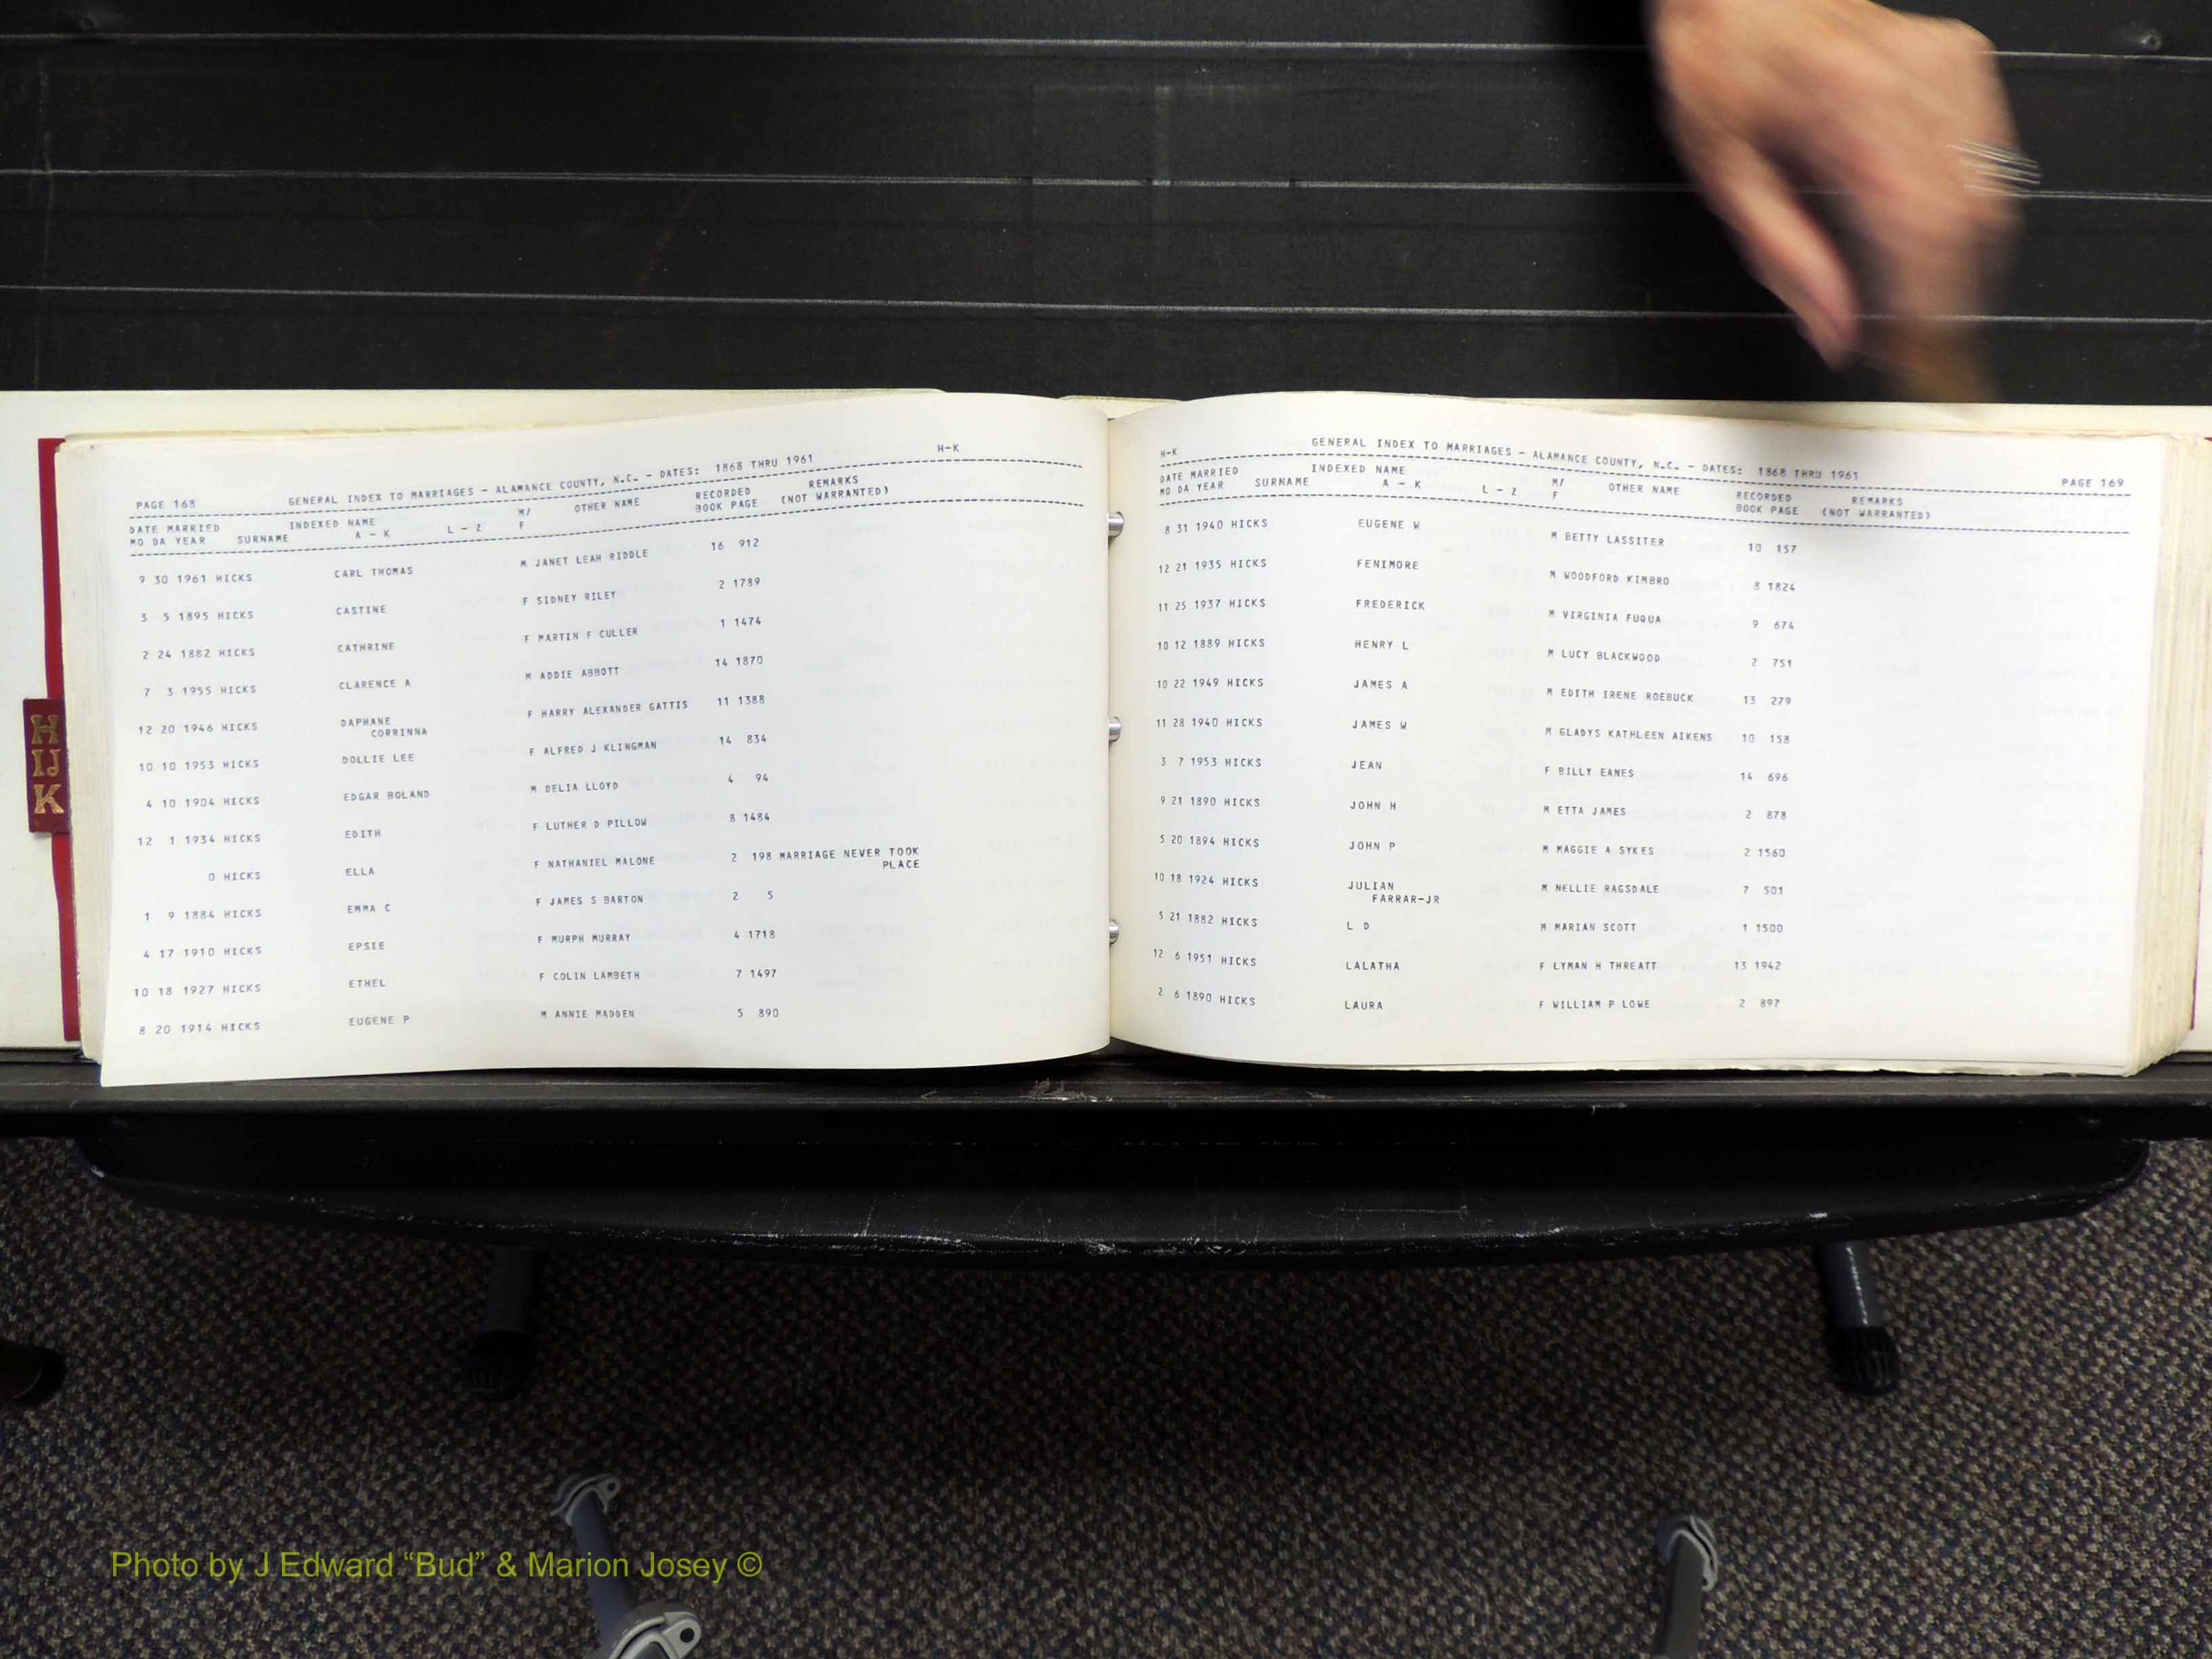 PAGE 168 GENERAL INDEX TO MARRIAGES - ALAMANCE COUNTY, N.C. - DATES: 1868 THRU 1961 H-K
DATE MARRIED INDEXED NAME M/ OTHER NAME RECORDED REMARKS
MO DA YEAR SURNAME A - K L - Z F BOOK PAGE (NOT WARRANTED)
9 30 1961 HICKS CARL THOMAS M JANET LEAH RIDDLE 16 912
3 5 1895 HICKS CASTINE F SIDNEY RILEY 2 1789
2 24 1882 HICKS CATHRINE F MARTIN F CULLER 1 1474
7 3 1955 HICKS CLARENCE A M ADDIE ABBOTT 14 1870
12 20 1946 HICKS DAPHANE F HARRY ALEXANDER GATTIS 11 1388
CORRINNA
10 10 1953 HICKS DOLLIE LEE F ALFRED J KLINGMAN 14 834
4 10 1904 HICKS EDGAR BOLAND M DELIA LLOYD 4 94
12 1 1934 HICKS EDITH F LUTHER D PILLOW 8 1484
0 HICKS ELLA F NATHANIEL MALONE 2 198 MARRIAGE NEVER TOOK
PLACE
1 9 1884 HICKS EMMA C F JAMES S BARTON 2 5
4 17 1910 HICKS EPSIE F MURPH MURRAY 4 1718
10 18 1927 HICKS ETHEL F COLIN LAMBETH 7 1497
8 20 1914 HICKS EUGENE P M ANNIE MADDEN 5 890
H-K GENERAL INDEX TO MARRIAGES - ALAMANCE COUNTY, N.C. - DATES: 1868 THRU 1961 PAGE 169
DATE MARRIED INDEXED NAME M/ OTHER NAME RECORDED REMARKS
MO DA YEAR SURNAME A - K L - Z F BOOK PAGE (NOT WARRANTED)
8 31 1940 HICKS EUGENE W M BETTY LASSITER 10 157
12 21 1935 HICKS FENIMORE M WOODFORD KIMBRO 8 1824
11 25 1937 HICKS FREDERICK M VIRGINIA FUQUA 9 674
10 12 1889 HICKS HENRY L M LUCY BLACKWOOD 2 751
10 22 1949 HICKS JAMES A M EDITH IRENE ROEBUCK 13 279
11 28 1940 HICKS JAMES W M GLADYS KATHLEEN AIKENS 10 158
3 7 1953 HICKS JEAN F BILLY EANES 14 696
9 21 1890 HICKS JOHN H M ETTA JAMES 2 878
5 20 1894 HICKS JOHN P M MAGGIE A SYKES 2 1560
10 18 1924 HICKS JULIAN M NELLIE RAGSDALE 7 501
FARRAR-JR
5 21 1882 HICKS L D M MARIAN SCOTT 1 1500
12 6 1951 HICKS LALATHA F LYMAN H THREATT 13 1942
2 6 1890 HICKS LAURA F WILLIAM P LOWE 2 897
H
IJ
K
Photo by J Edward “Bud” & Marion Josey ©